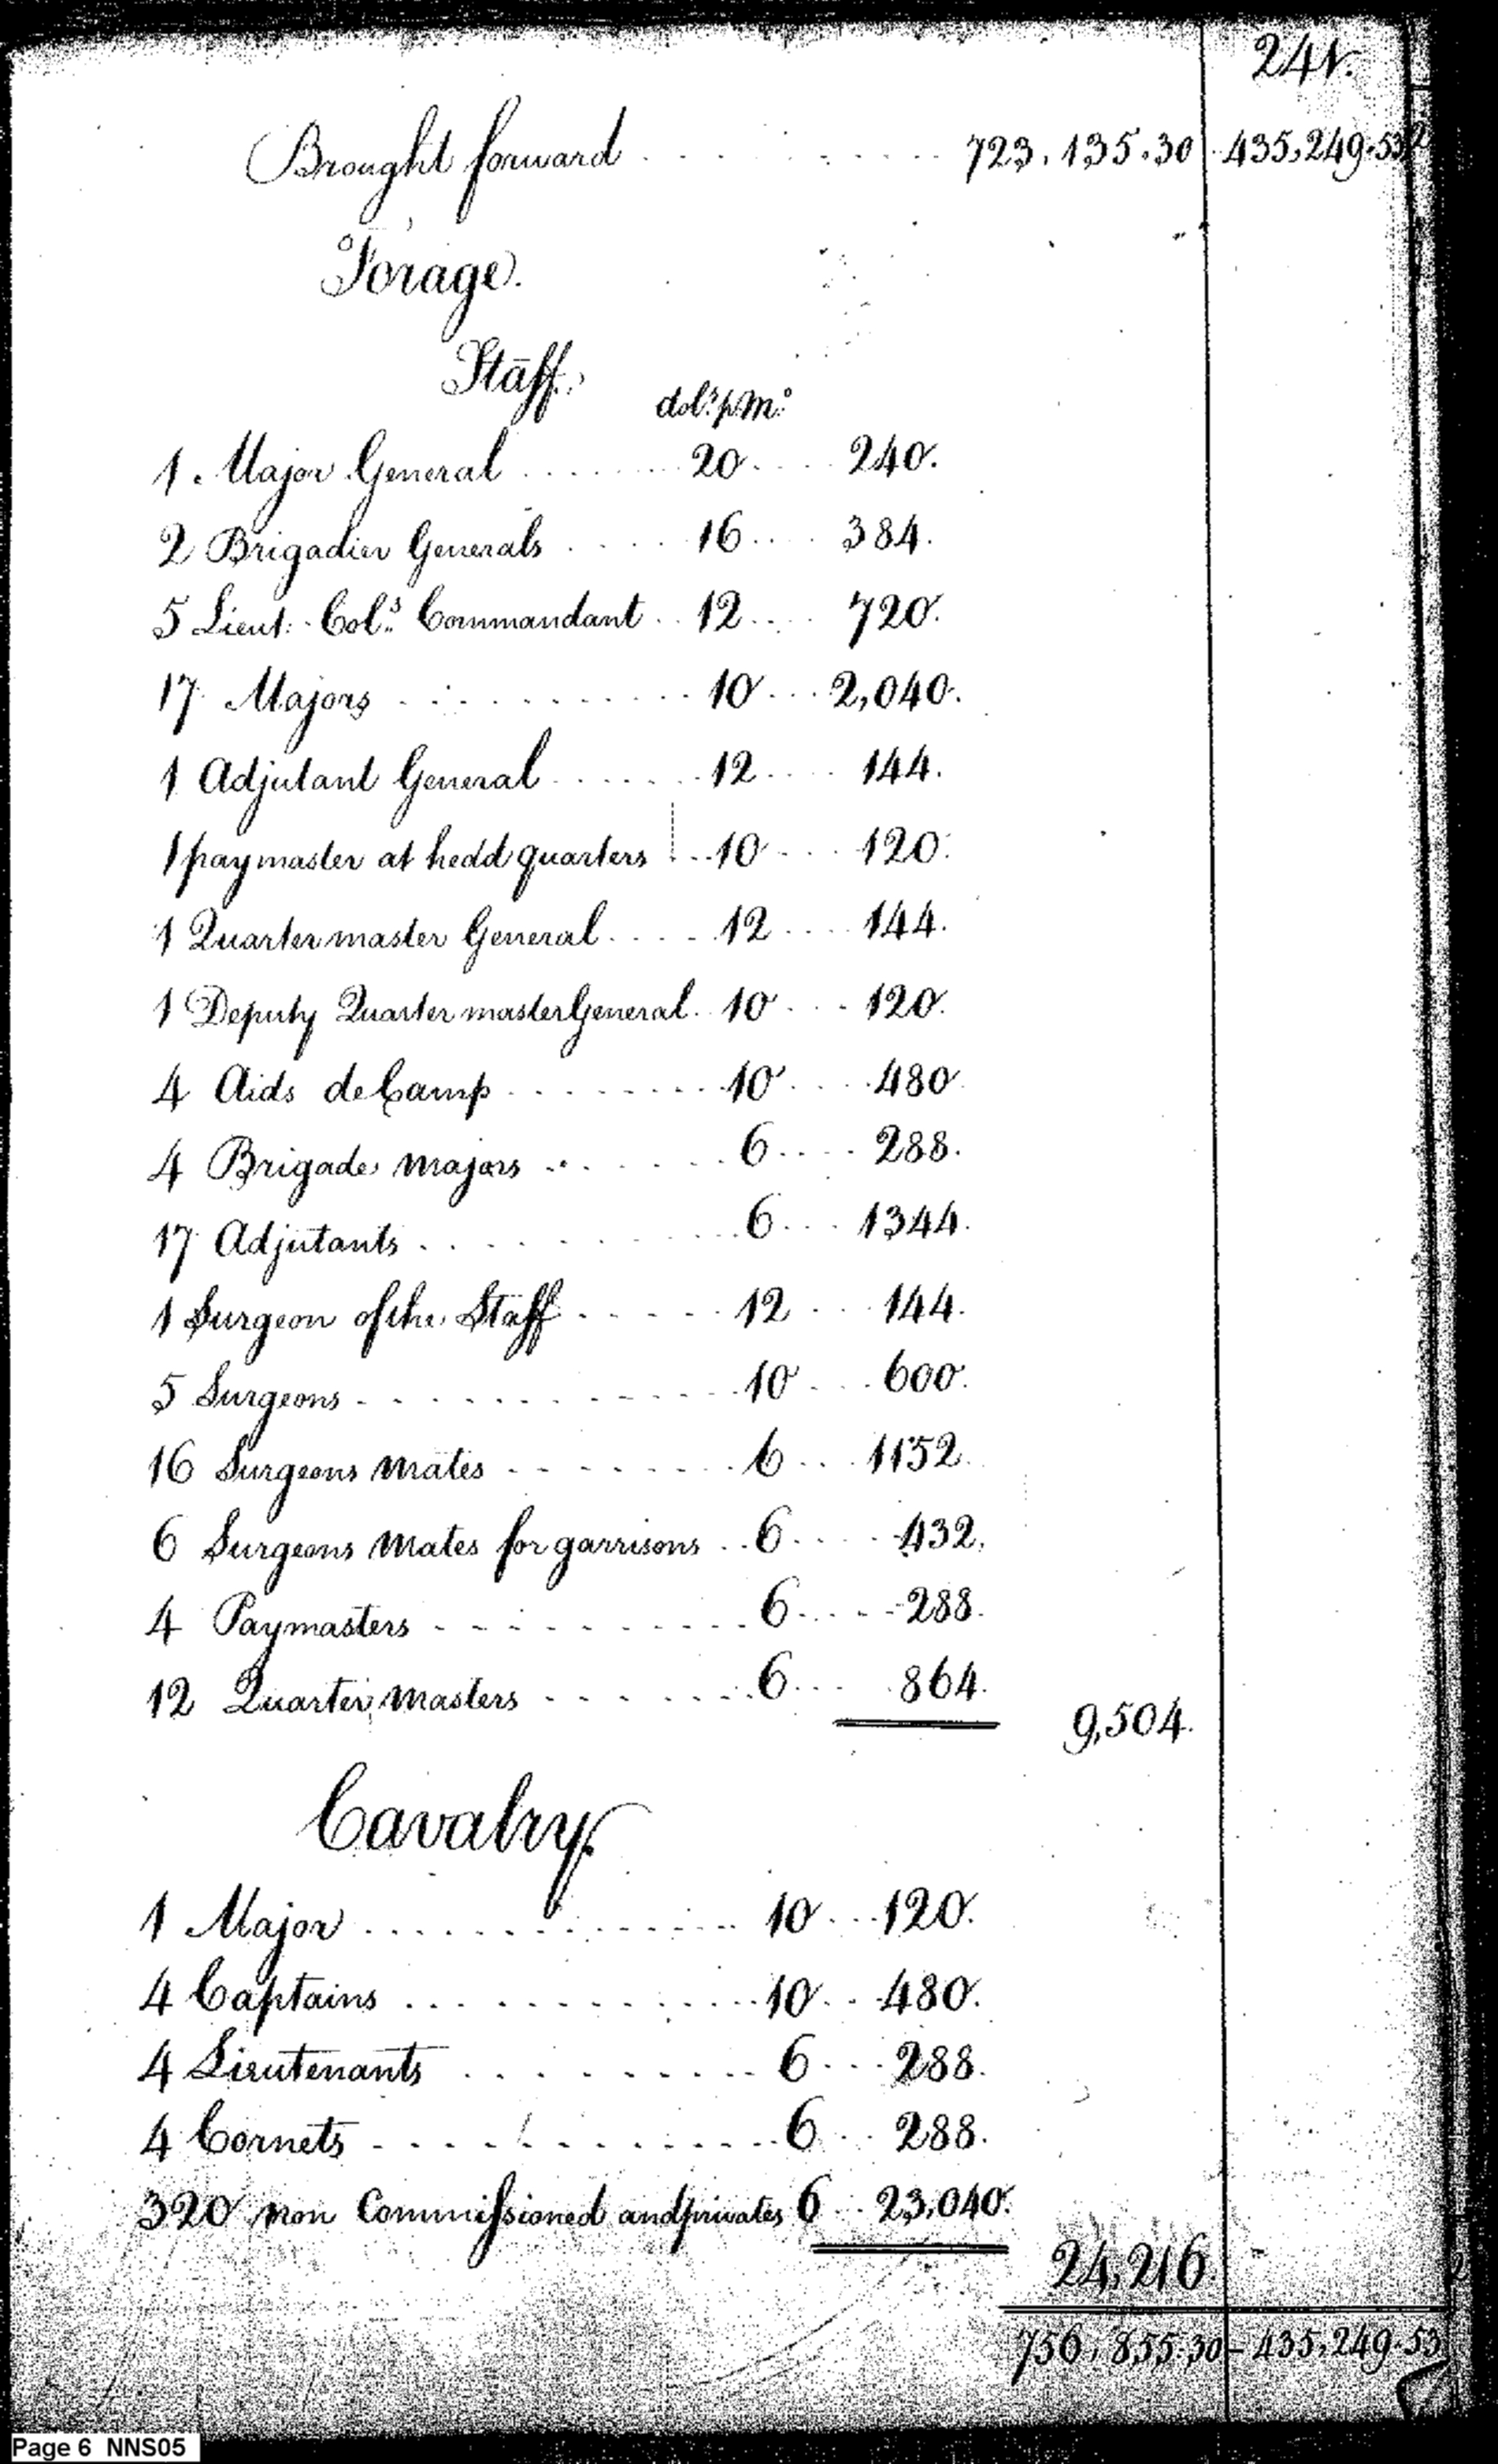 241.
Brought forward . . . . . . . . . . 723,135.30 435,249.53
Forage.
Staff.
dolˢ. p. Mº.
1 Major General . . . . . . 20 . . . . 240.
2 Brigadier Generals . . . . . 16 . . . . 384.
5 Lieut. Colˢ. Commandant . . 12 . . . . 720.
17 Majors . . . . . . . . . . 10 . . . 2,040.
1 Adjutant General . . . . . . 12 . . . . 144.
1 paymaster at hedd quarters . . 10 . . . . 120.
1 Quartermaster General . . . . 12 . . . . 144.
1 Deputy Quarter master General . 10 . . . 120.
4 Aids de Camp . . . . . . . . 10 . . . . 480
4 Brigade majors . . . . . . . 6 . . . . 288.
17 Adjutants . . . . . . . . . . 6 . . . 1344.
1 Surgeon of the Staff . . . . . 12 . . . 144.
5 Surgeons . . . . . . . . . . 10 . . . 600.
16 Surgeons Mates . . . . . . . . 6 . . . 1152.
6 Surgeons Mates for garrisons . . 6 . . . . 432.
4 Paymasters . . . . . . . . . . 6 . . . . 288.
12 Quarter Masters . . . . . . . 6 . . . 864.
9,504.
Cavalry.
1 Major . . . . . . . . . . . . 10 . . . 120.
4 Captains . . . . . . . . . . . 10 . . . 480.
4 Lieutenants . . . . . . . . . . 6 . . . 288.
4 Cornets . . . . . . . . . . . . 6 . . . 288.
320 non Commissioned and privates 6 . . 23,040.
24,216.
756,855.30 – 435,249.53
Page 6 NNS05